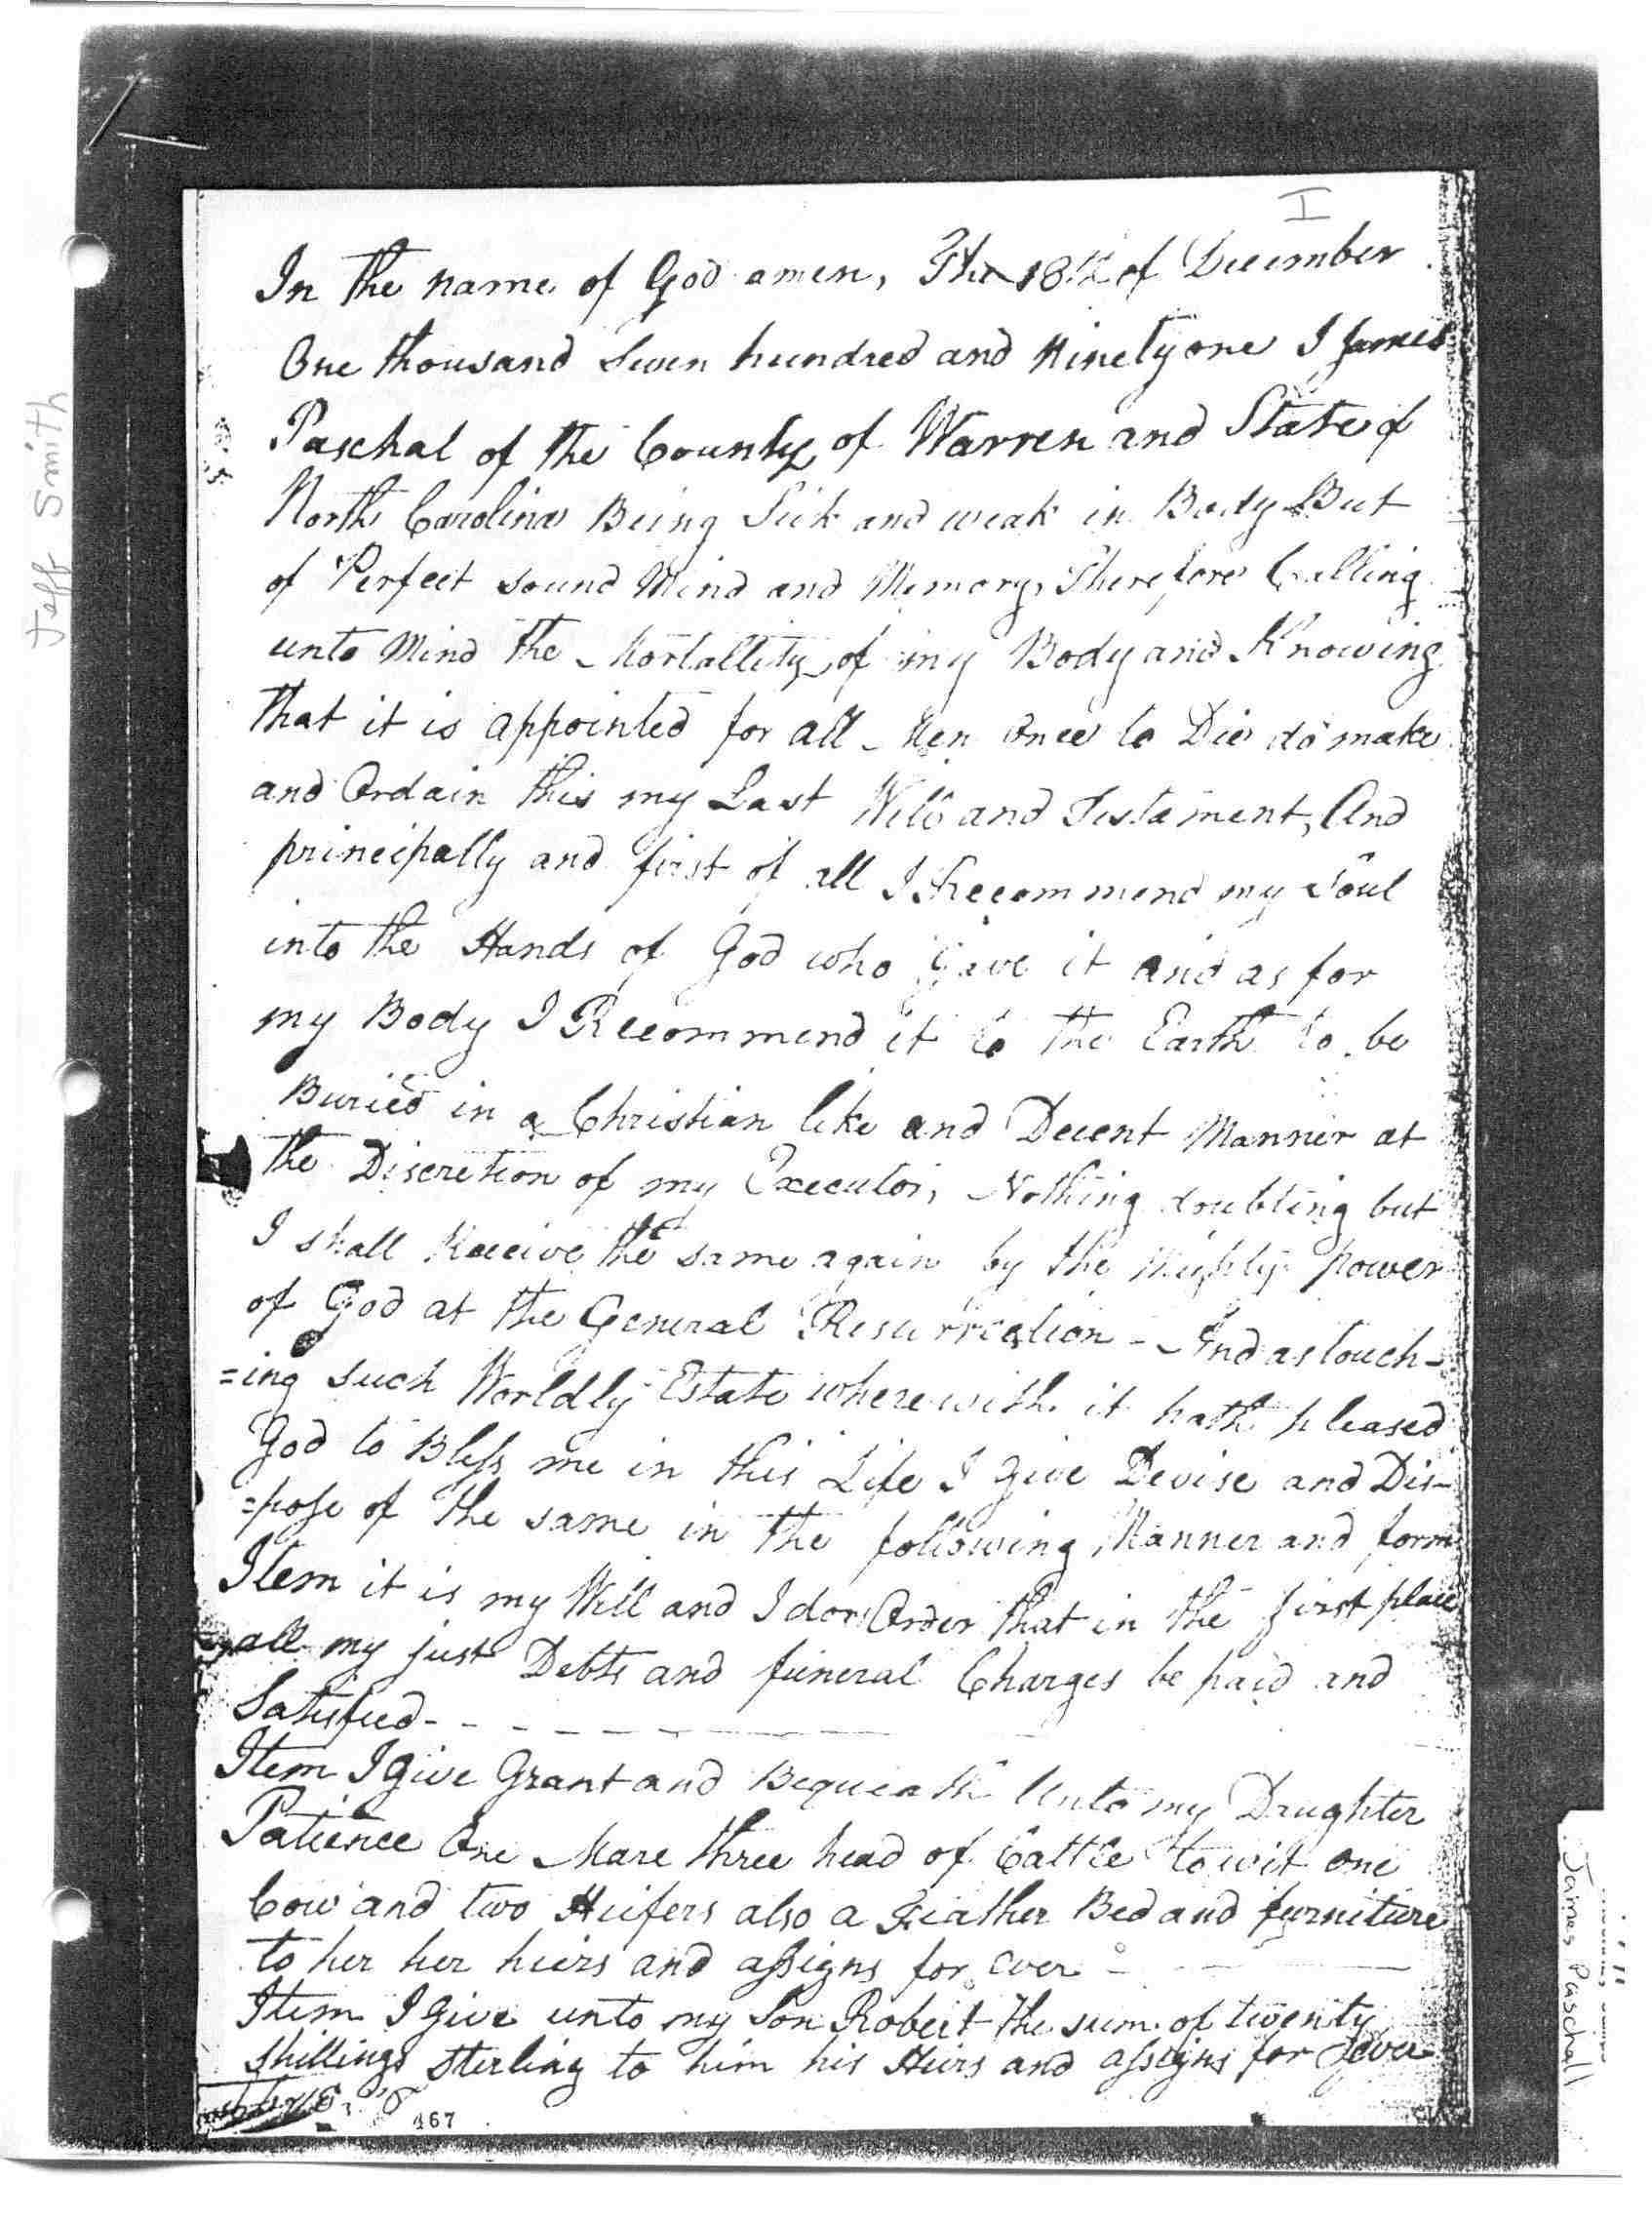 I
In the name of God amen, The 18th of December
One thousand Seven hundred and Ninety one I James
Paschal of the County of Warren and State of
North Carolina Being Sick and weak in Body But
of Perfect sound Mind and Memory, Therefore Calling
unto Mind the Mortallity of my Body and Knowing
that it is appointed for all Men once to Die do make
and Ordain this my Last Will and Testament, And
principally and first of all I Recommend my Soul
into the Hands of God who Gave it and as for
my Body I Recommend it to the Earth to be
Buried in a Christian like and Decent Manner at
the Discretion of my Executor, Nothing doubting but
I shall Receive the same again by the Mighty power
of God at the General Resurrection - And as touch-
=ing such Worldly Estate wherewith it hath pleased
God to Bless me in this Life I give Devise and Dis-
=pose of the same in the following Manner and form
Item it is my Will and I do Order that in the first place
all my just Debts and funeral Charges be paid and
Satisfied - - - - - - - -
Item I Give Grant and Bequeath Unto my Daughter
Patience One Mare three head of Cattle to wit one
Cow and two Heifers also a Feather Bed and furniture
to her her heirs and assigns for ever - - -
Item I Give unto my Son Robert the sum of twenty
shillings sterling to him his Heirs and assigns for Ever
467
Jeff Smith
James Paschall